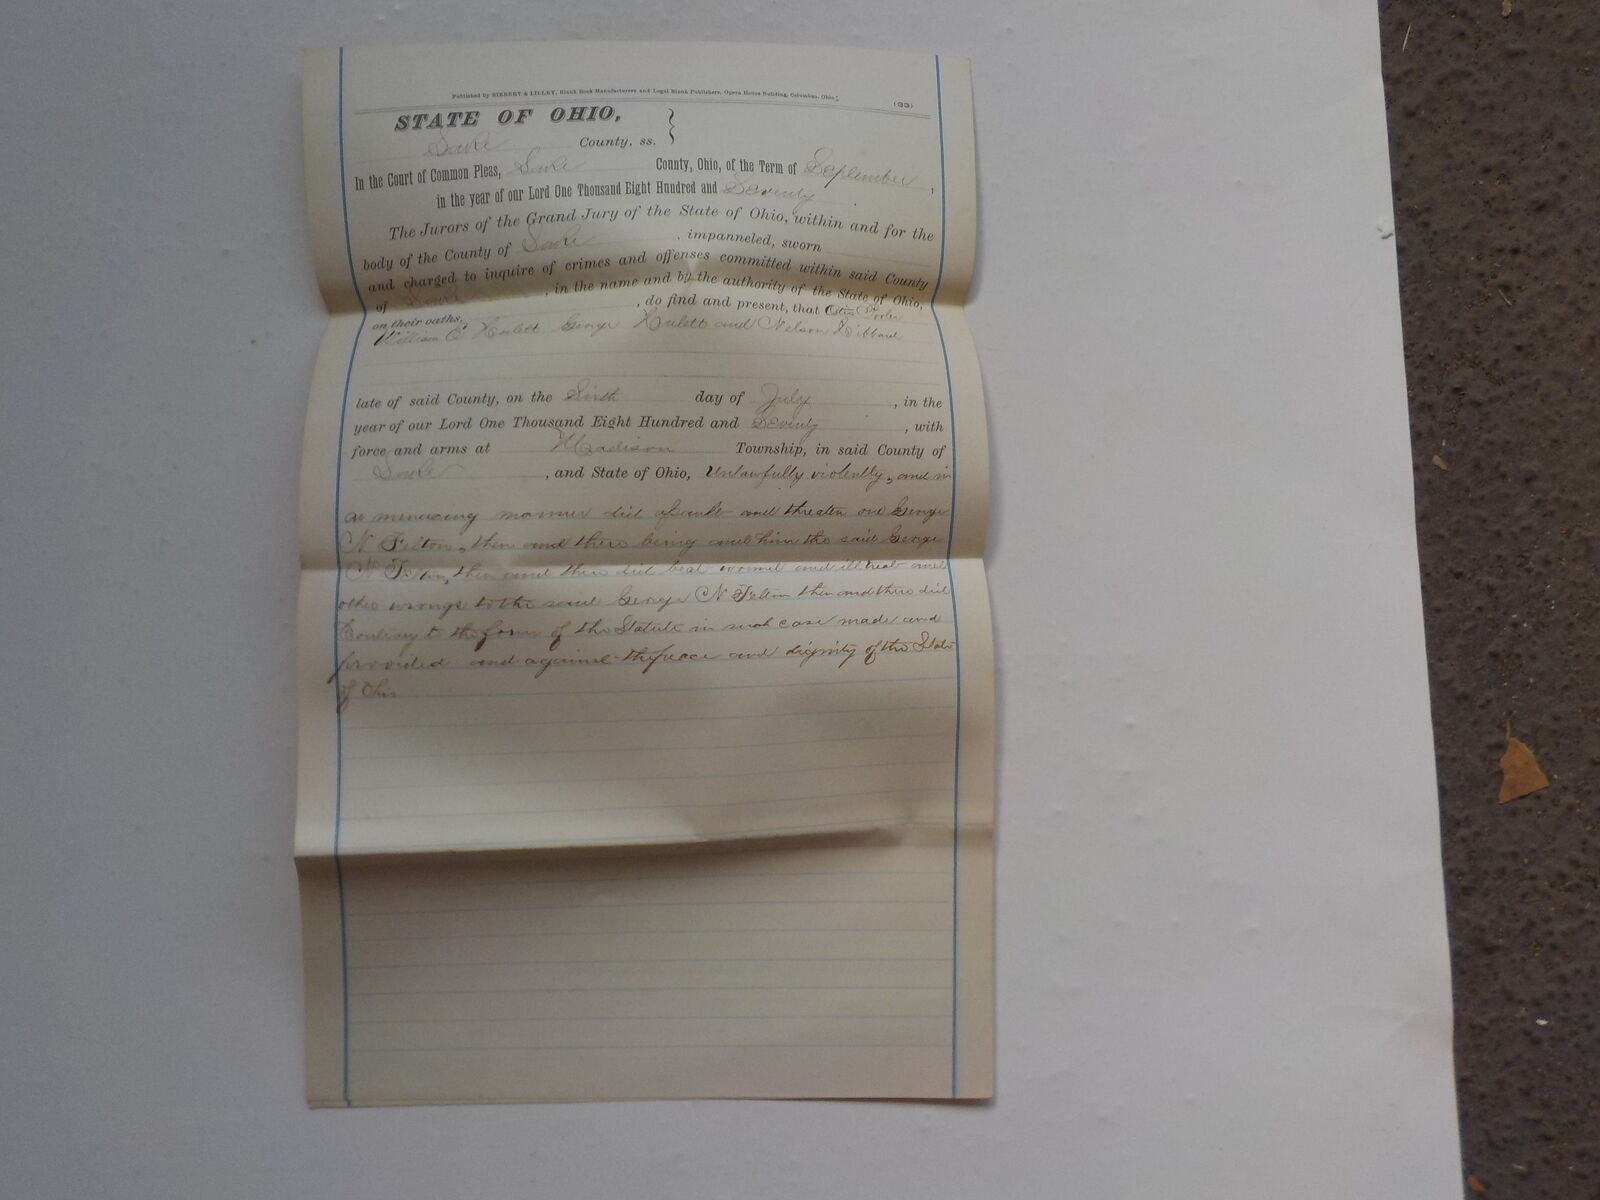 Published by SIEBERT & LILLEY, Blank Book Manufacturers and Legal Blank Publishers, Opera House Building, Columbus, Ohio.
(33)
STATE OF OHIO,
Lake County, ss.
In the Court of Common Pleas, Lake County, Ohio, of the Term of September,
in the year of our Lord One Thousand Eight Hundred and Seventy.
The Jurors of the Grand Jury of the State of Ohio, within and for the
body of the County of Lake, impanneled, sworn
and charged to inquire of crimes and offenses committed within said County
of Lake, in the name and by the authority of the State of Ohio,
on their oaths, do find and present, that Otis
William E Hulett George Hulett and Nelson Hibbard
late of said County, on the Sixth day of July, in the
year of our Lord One Thousand Eight Hundred and Seventy, with
force and arms at Madison Township, in said County of
Lake, and State of Ohio, Unlawfully violently, and in
a menacing manner did assault and threaten one George
N Felton, then and there being and him the said George
N Felton, then and there did beat wound and illtreat and
other wrongs to the said George N Felton then and there did
Contrary to the form of the Statute in such case made and
provided and against the peace and dignity of the State
of Ohio